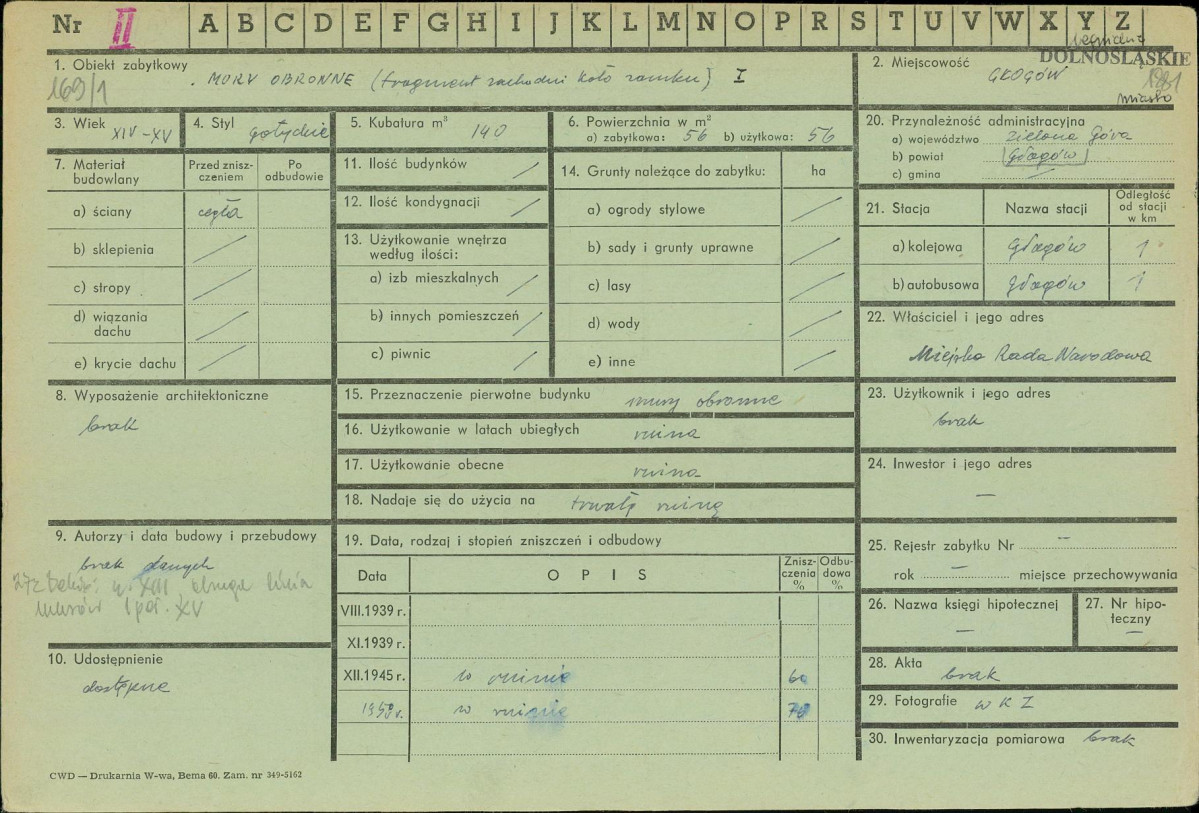 Nr II A B C D E F G H I J K L M N O P R S T U V W X Y Z
DOLNOŚLĄSKIE
1. Obiekt zabytkowy
MURY OBRONNE (fragment zachodni koło zamku) I
169/1
2. Miejscowość
GŁOGÓW
miasto
3. Wiek XIV-XV
4. Styl gotyckie
5. Kubatura m³ 140
6. Powierzchnia w m²
a) zabytkowa: 56 b) użytkowa: 56
20. Przynależność administracyjna
a) województwo Zielona Góra
b) powiat (Głogów)
c) gmina —
7. Materiał budowlany
Przed zniszczeniem
Po odbudowie
a) ściany cegła
b) sklepienia /
c) stropy /
d) wiązania dachu /
e) krycie dachu /
11. Ilość budynków /
12. Ilość kondygnacji /
13. Użytkowanie wnętrza
według ilości:
a) izb mieszkalnych /
b) innych pomieszczeń /
c) piwnic /
14. Grunty należące do zabytku: ha
a) ogrody stylowe /
b) sady i grunty uprawne /
c) lasy /
d) wody /
e) inne /
21. Stacja
Nazwa stacji
Odległość od stacji w km
a) kolejowa Głogów 1
b) autobusowa Głogów 1
22. Właściciel i jego adres
Miejska Rada Narodowa
8. Wyposażenie architektoniczne
brak
15. Przeznaczenie pierwotne budynku mury obronne
16. Użytkowanie w latach ubiegłych ruina
17. Użytkowanie obecne ruina
18. Nadaje się do użycia na trwałą ruinę
23. Użytkownik i jego adres
brak
24. Inwestor i jego adres
—
9. Autorzy i data budowy i przebudowy
brak danych
XIII, druga linia
murów I poł. XV
19. Data, rodzaj i stopień zniszczeń i odbudowy
Data
OPIS
Zniszczenia %
Odbudowa %
VIII.1939 r.
XI.1939 r.
XII.1945 r. w ruinie 60
w ruinie 70
25. Rejestr zabytku Nr —
rok — miejsce przechowywania
26. Nazwa księgi hipotecznej
—
27. Nr hipoteczny
—
10. Udostępnienie
dostępne
28. Akta brak
29. Fotografie W K Z
30. Inwentaryzacja pomiarowa brak
CWD — Drukarnia W-wa, Bema 60. Zam. nr 349-5162